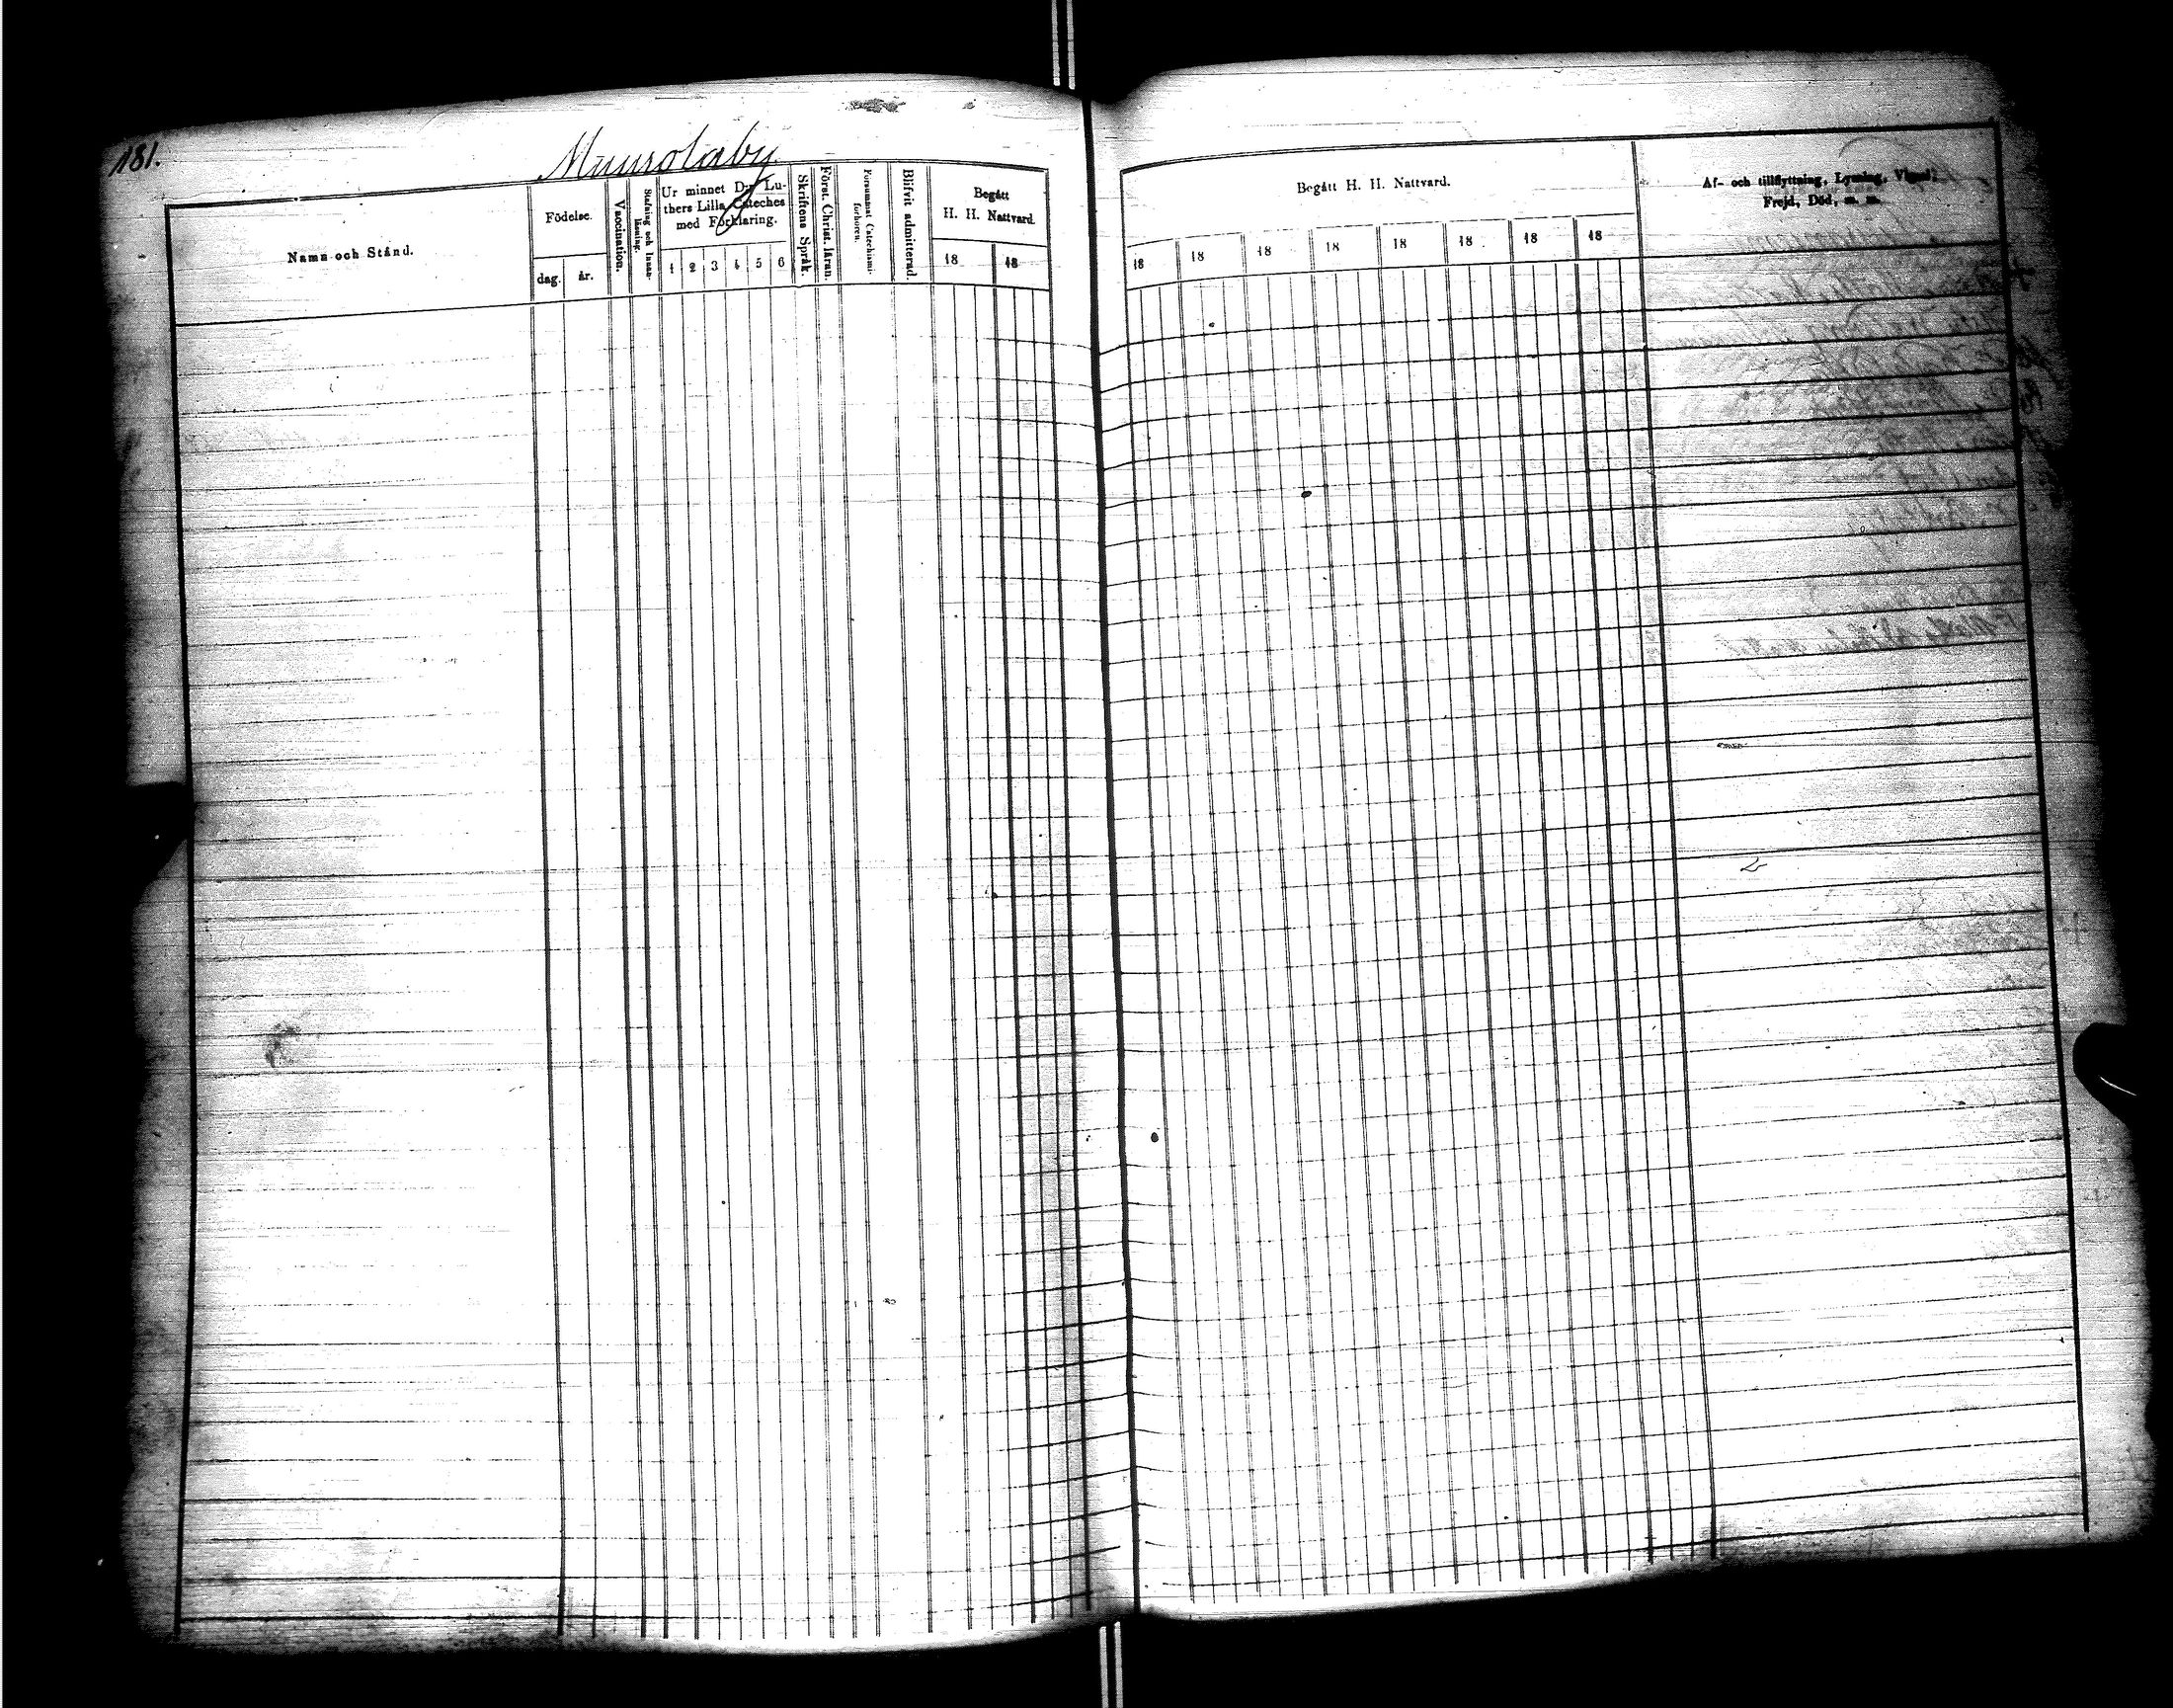 181.
Muurolaby
Namn och Stånd.
Födelse.
dag.
år.
Vaccination.
Stafning och Innan-
läsning.
Ur minnet D:r Lu-
thers Lilla Cateches
med Förklaring.
1 2 3 4 5 6
Skriftens Språk.
Först. Christ. läran.
Försummat Catechismi-
förhören.
Blifvit admitterad.
Begått
H. H. Nattvard.
18 18
Begått H. H. Nattvard.
18 18 18 18 18 18 18 18
Af- och tillflyttning, Lysning, Vigsel,
Frejd, Död, m. m.